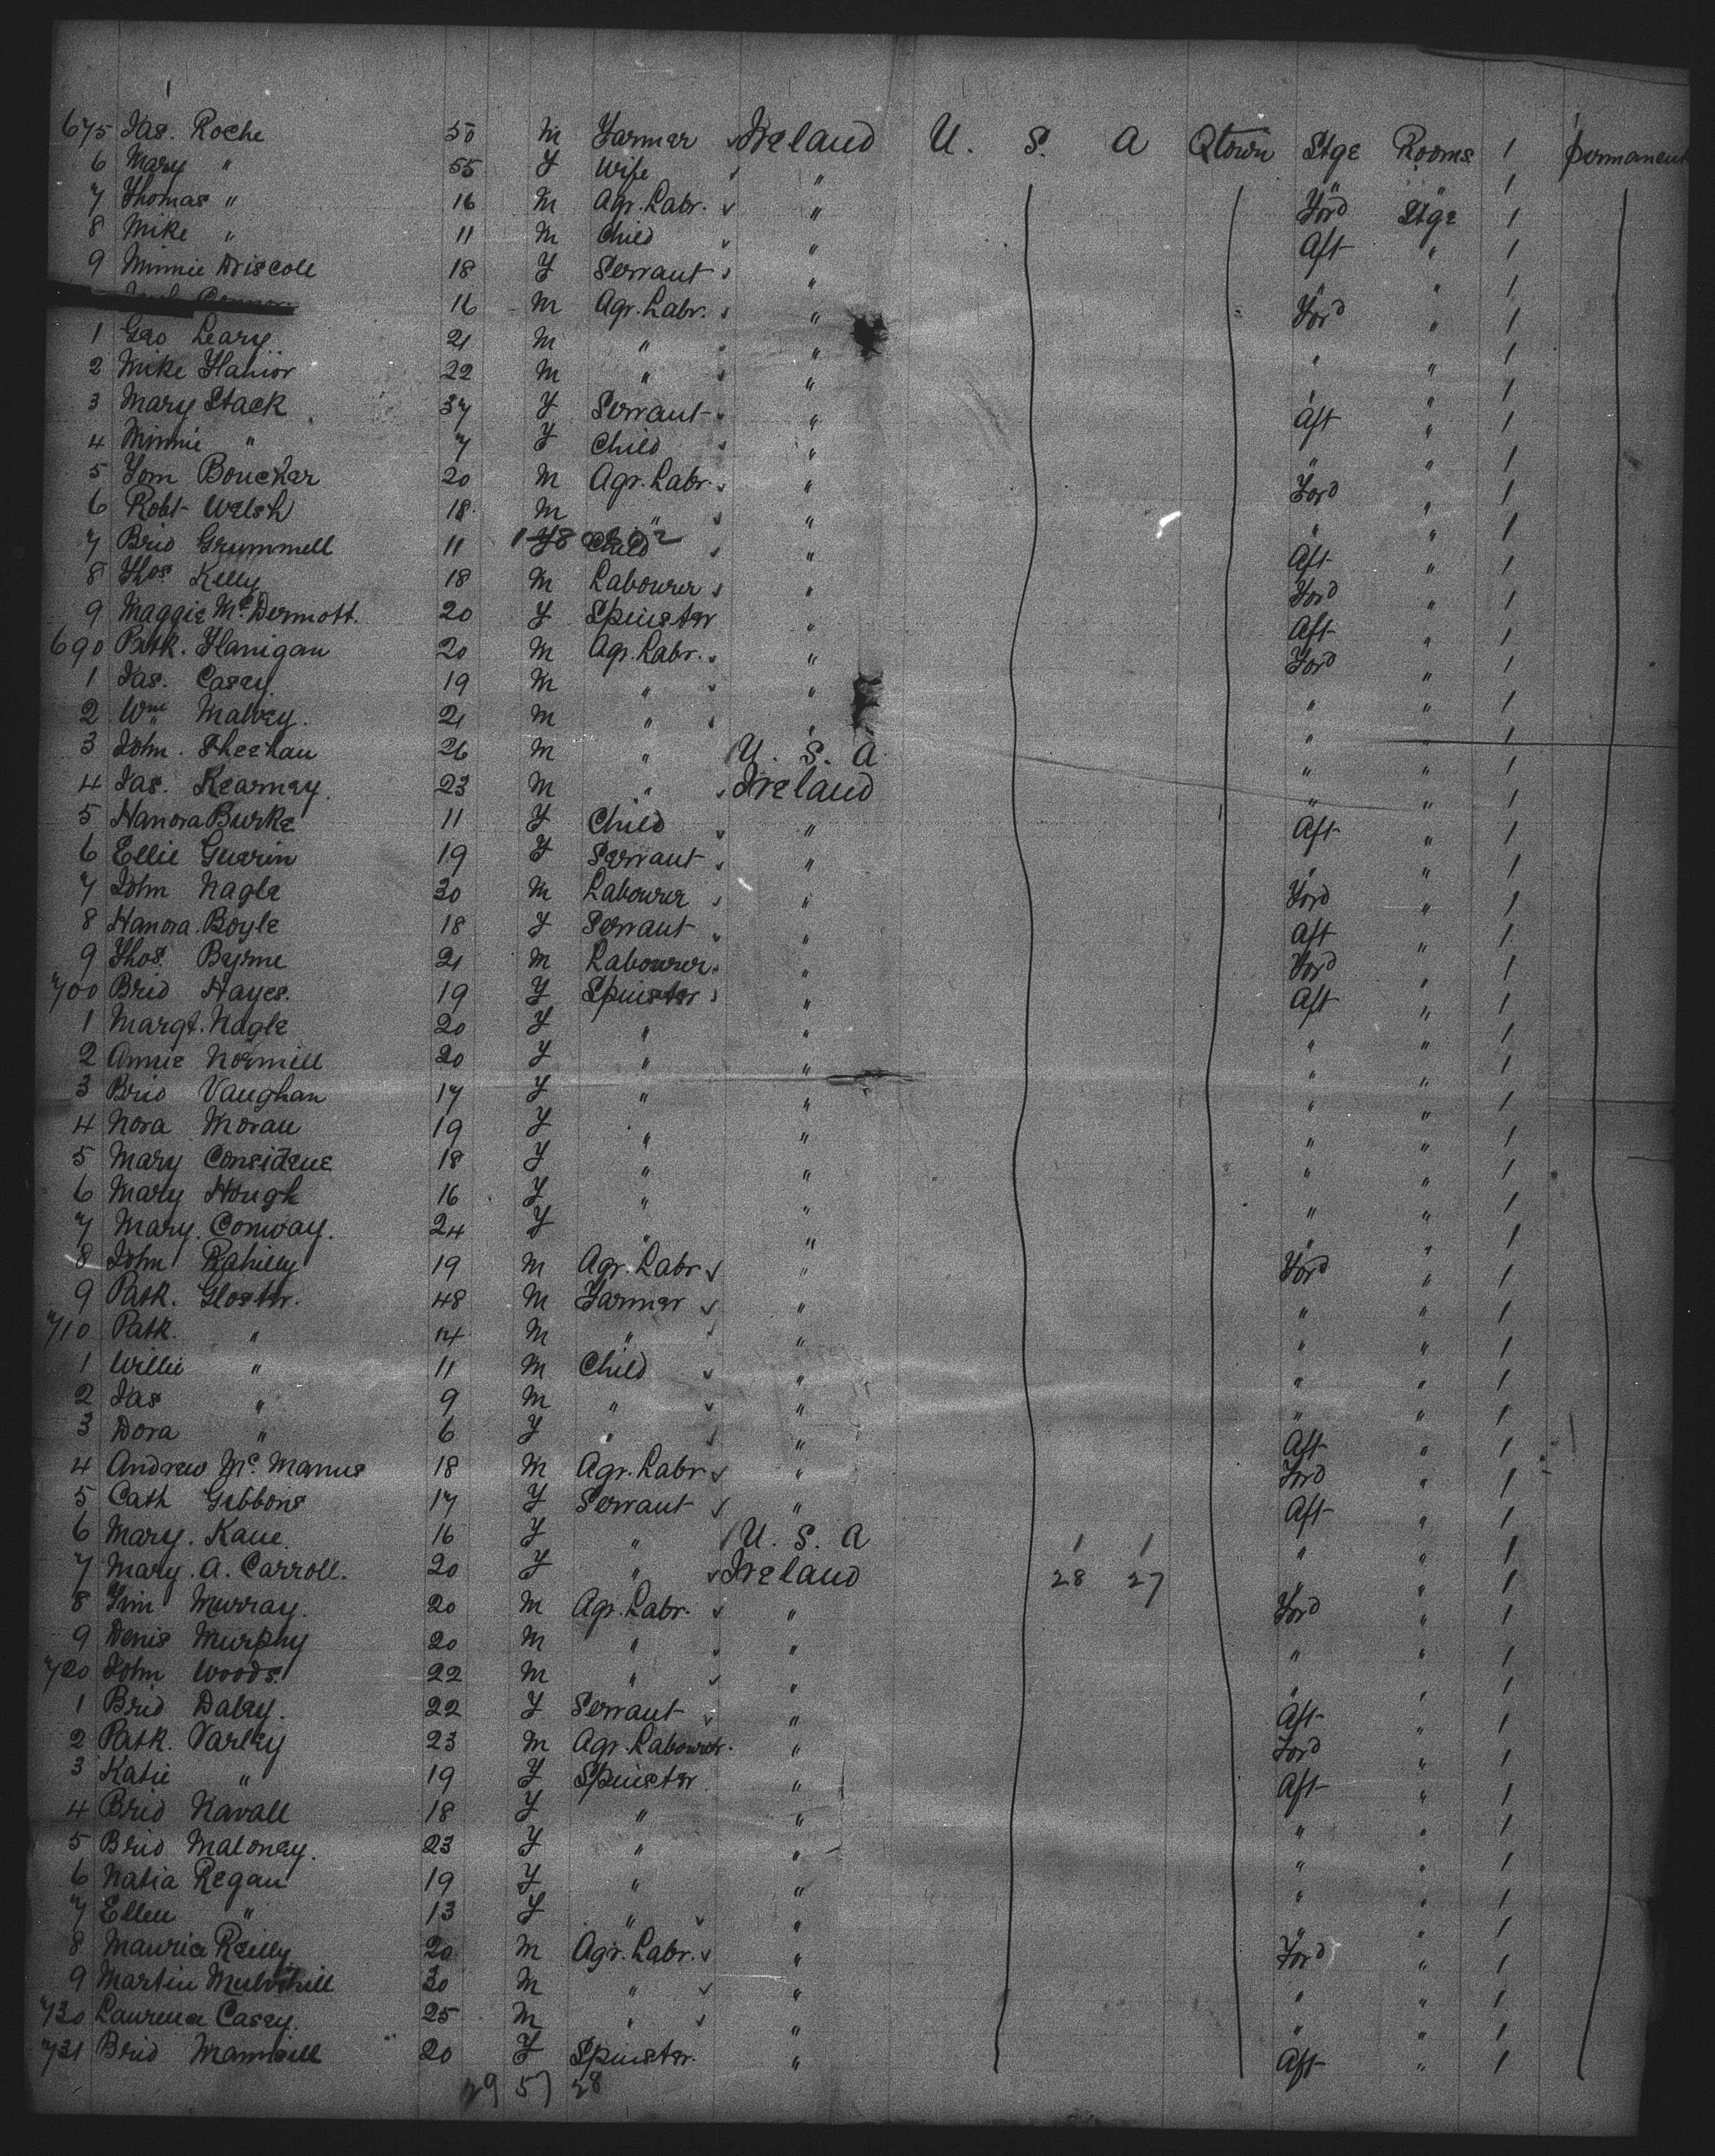 675 Jas. Roche 50 M Farmer Ireland U. S. A Qtown Stge Rooms 1 permanent
6 Mary " 55 F Wife " " " 1
7 Thomas " 16 M Agr. Labr. " Ford Stge 1
8 Mike " 11 M Child " Aft " 1
9 Minnie Driscoll 18 F Servant " " " 1
16 M Agr. Labr. " Ford " 1
1 Geo Leary 21 M " " " " 1
2 Mike 22 M " " " " 1
3 Mary Stack 37 F Servant " Aft " 1
4 Minnie " 7 F Child " " " 1
5 Tom Boucher 20 M Agr. Labr. " Ford " 1
6 Robt Welsh 18 M " " " " 1
7 Brid Grummell 11 F Child " Aft " 1
8 Thos. Kelly 18 M Labourer " Ford " 1
9 Maggie McDermott. 20 F Spinster " Aft " 1
690 Patk. Flanigan 20 M Agr. Labr. " Ford " 1
1 Jas. Casey 19 M " " " " 1
2 Wm Malvey. 21 M " " " " 1
3 John. Sheehan 26 M " U. S. A " " 1
4 Jas. Kearney. 23 M " Ireland " " 1
5 Hanora Burke 11 F Child " Aft " 1
6 Ellie Guerin 19 F Servant " " " 1
7 John Nagle 30 M Labourer " Ford " 1
8 Hanora. Boyle 18 F Servant " Aft " 1
9 Thos. Byrne 21 M Labourer " Ford " 1
700 Brid Hayes. 19 F Spinster " Aft " 1
1 Margt. Nagle 20 F " " " " 1
2 Annie Normill 20 F " " " " 1
3 Brid Vaughan 17 F " " " " 1
4 Nora Moran 19 F " " " " 1
5 Mary Considene 18 F " " " " 1
6 Mary Hough 16 F " " " " 1
7 Mary. Conway. 24 F " " " " 1
8 John Rahilly 19 M Agr. Labr " Ford " 1
9 Patk. Gloster. 48 M Farmer " " " 1
710 Patk. " 14 M " " " " 1
1 Willie " 11 M Child " " " 1
2 Jas " 9 M " " " " 1
3 Dora " 6 F " " Aft " 1
4 Andrew Mc. Manus 18 M Agr. Labr " Ford " 1
5 Cath Gibbons 17 F Servant " Aft " 1
6 Mary. Kane. 16 F " U. S. A 1 1 " " 1
7 Mary. A. Carroll. 20 F " Ireland 28 27 " " 1
8 Tim Murray. 20 M Agr. Labr. " Ford " 1
9 Denis Murphy 20 M " " " " 1
720 John Woods. 22 M " " " " 1
1 Brid Daley. 22 F Servant " Aft " 1
2 Patk. Varley 23 M Agr. Labourer. " Ford " 1
3 Katie " 19 F Spinster " Aft " 1
4 Brid Navall 18 F " " " " 1
5 Brid Maloney. 23 F " " " " 1
6 Natia Regan 19 F " " " " 1
7 Ellen " 13 F " " " " 1
8 Maurice Reilly 20 M Agr. Labr. " Ford " 1
9 Martin Mulvihill 30 M " " " " 1
730 Laurence Casey. 25 M " " " " 1
731 Brid 20 F Spinster. " Aft " 1
29 57 28